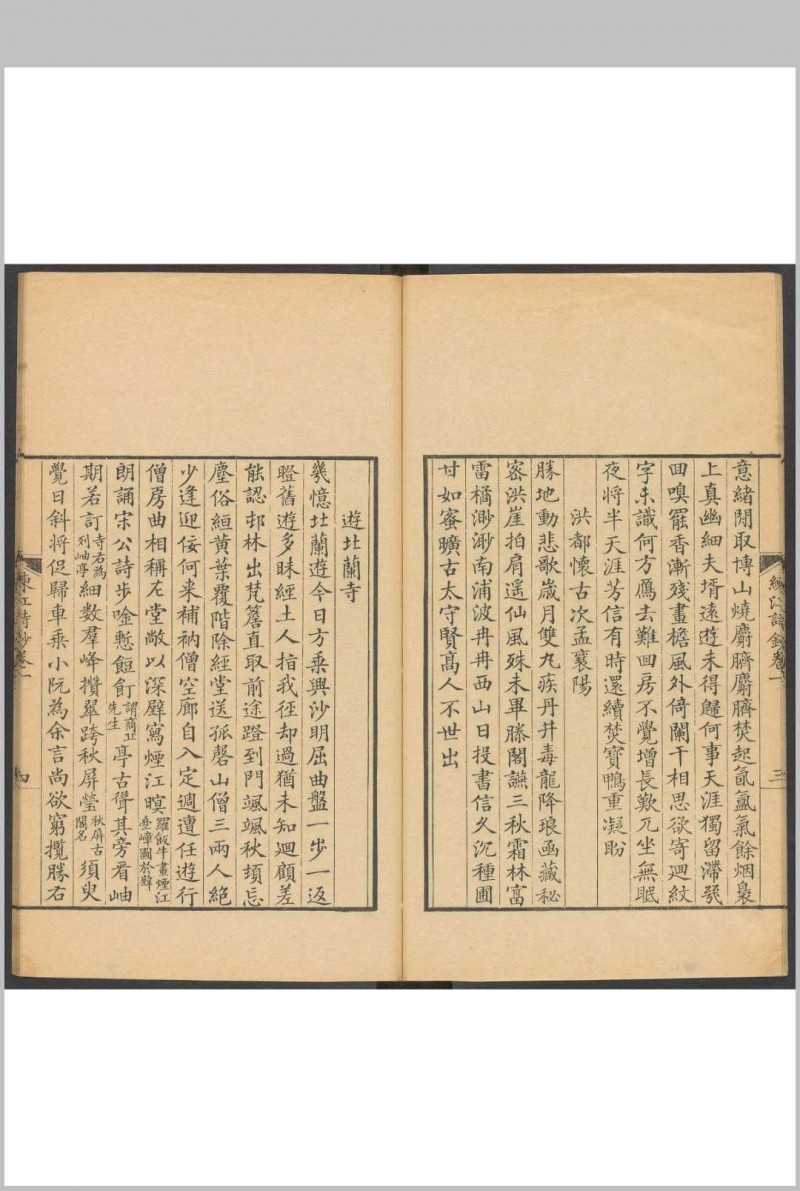 意緒閒取博山燒麝臍麝臍焚起氤氳氣餘烟裊
上真幽細夫壻遠遊未得歸何事天涯獨留滯幾
回嗅罷香漸殘畫檐風外倚闌干相思欲寄迴紋
字未識何方鴈去難回房不覺增長歎兀坐無眠
夜将半天涯芳信有時還續焚寶鴨重凝盼
洪都懷古次孟襄陽
勝地動悲歌歲月雙丸疾丹井毒龍降琅函藏秘
密洪崖拍肩遥仙風殊未畢滕閣讌三秋霜林富
雷橘渺渺南浦波冉冉西山日投書信久沉種圃
甘如蜜曠古太守賢高人不世出
練江詩鈔卷一
三
遊北蘭寺
幾憶北蘭遊今日方乗興沙明屈曲盤一步一返
瞪舊遊多昧經土人指我徑却過猶未知迴顧差
能認邨林出梵簷直取前途蹬到門颯颯秋頓忘
塵俗緪黄葉覆階除經堂送孤磬山僧三兩人絶
少逢迎佞何来補衲僧空廊自入定週遭任遊行
僧房曲相稱左堂敞以深壁寫煙江暝羅飯牛畫煙江疊嶂圖於壁
朗誦宋公詩步唫慙餖飣謂商丘先生亭古聳其旁看岫
期若訂寺右為列岫亭細數羣峰攢翠跨秋屏瑩秋屏古閣名須臾
覺日斜将促歸車乗小阮為余言尚欲窮攬勝右
練江詩鈔卷一
四